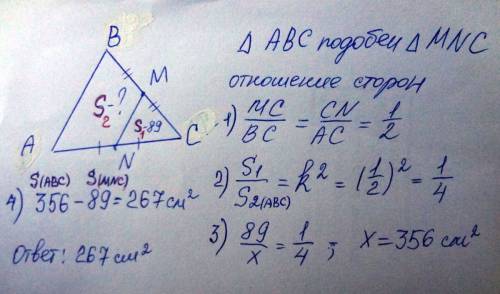 B
M
A
N
C
S₂-?
S₁-89
Δ ABC подобен Δ MNC
отношение сторон
1) MC/BC = CN/AC = 1/2
2) S1/S2(ABC) = k² = (1/2)² = 1/4
3) 89/x = 1/4 ; x = 356 см²
S(ABC) S(MNC)
4) 356 - 89 = 267 см²
Ответ: 267 см²